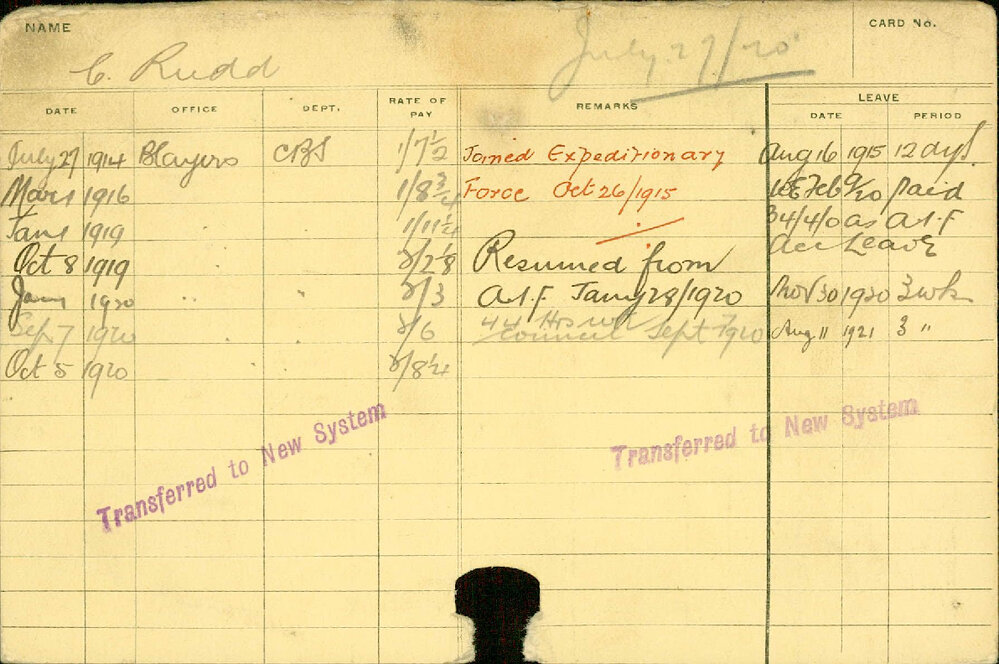 NAME CARD No.
C. Rudd July 27/20
LEAVE
DATE OFFICE DEPT. RATE OF PAY REMARKS DATE PERIOD
July 27 1914 CBS 1/7½ Joined Expeditionary Aug 16 1915 12 days
Mar 1916 1/8¾ Force Oct 26/1915 Feb 9/20 paid
1919 1/11¼ 34/4/0 as A.I.F
Oct 8 1919 2/2⅛ Resumed from Acc Leave
Jany 1920 " " 2/3 A.I.F Jany 28/1920 Nov 30 1920 3 wk
Sep 7 1920 " " 2/6 44 Hrs Council Sept 7 1920 Aug 11 1921 3 "
Oct 5 1920 2/8¼
Transferred to New System
Transferred to New System